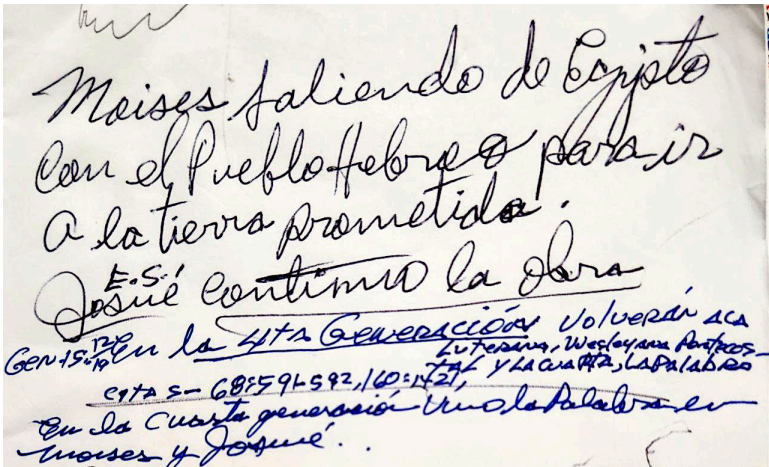 Moises saliendo de Egipto
Con el Pueblo Hebreo para ir
a la tierra prometida.
E.S.
Josué continuo la obra
Gen-15: 12 19 En la 4ta Generación Volverán acá
Luterana, Wesleyana Pentecos-
tal y la cuarta, la Palabra
cita S- 68:591-592, 160:1421,
En la Cuarta generación vino la Palabra en
Moises y Josué.